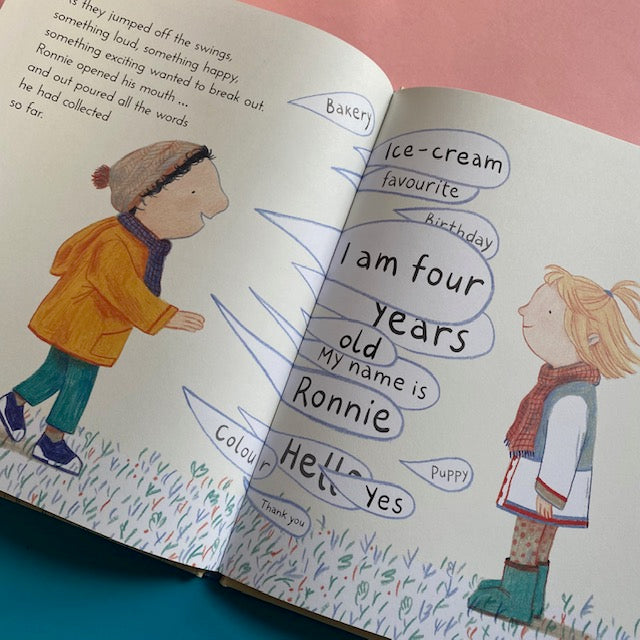 As they jumped off the swings,
something loud, something happy,
something exciting wanted to break out.
Ronnie opened his mouth ...
and out poured all the words
he had collected
so far.
Bakery
Ice-cream
favourite
Birthday
I am four
years
old
My name is
Ronnie
Colour
Hello
Yes
Puppy
Thank you